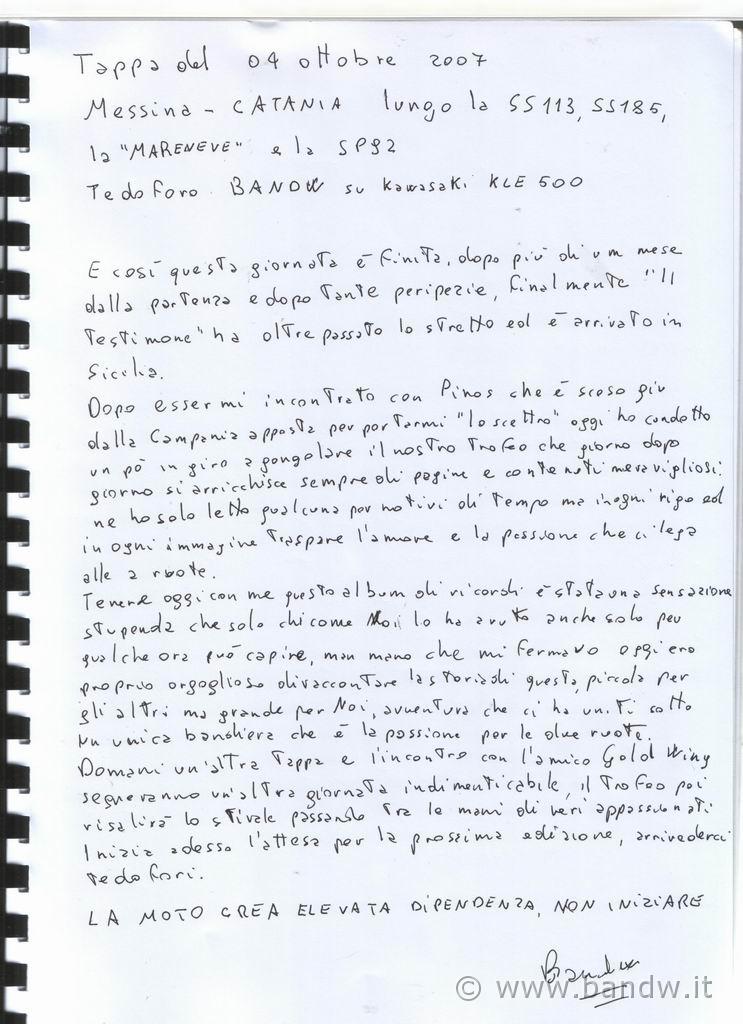 Tappa del 04 ottobre 2007
Messina - CATANIA lungo la SS113, SS185,
la "MARENEVE" e la SP92
Tedoforo BANDW su Kawasaki KLE 500
E così questa giornata è finita, dopo più di un mese
dalla partenza e dopo tante peripezie, finalmente "Il
Testimone" ha oltrepassato lo stretto ed è arrivato in
Sicilia.
Dopo essermi incontrato con Pinos che è sceso giù
dalla Campania apposta per portarmi "lo scettro" oggi ho condotto
un pò in giro a gongolare il nostro Trofeo che giorno dopo
giorno si arricchisce sempre di pagine e contenuti meravigliosi;
ne ho solo letto qualcuna per motivi di tempo ma in ogni rigo ed
in ogni immagine traspare l'amore e la passione che ci lega
alle 2 ruote.
Tenere oggi con me questo album di ricordi è stata una sensazione
stupenda che solo chi come Noi lo ha avuto anche solo per
qualche ora può capire, man mano che mi fermavo oggi ero
proprio orgoglioso di raccontare la storia di questa, piccola per
gli altri ma grande per Noi, avventura che ci ha uniti sotto
un unica bandiera che è la passione per le due ruote.
Domani un'altra Tappa e l'incontro con l'amico Gold Wing
segneranno un'altra giornata indimenticabile, il Trofeo poi
risalirà lo stivale passando tra le mani di veri appassionati
Inizia adesso l'attesa per la prossima edizione, arrivederci
tedofori.
LA MOTO CREA ELEVATA DIPENDENZA, NON INIZIARE
Bandw
© www.bandw.it